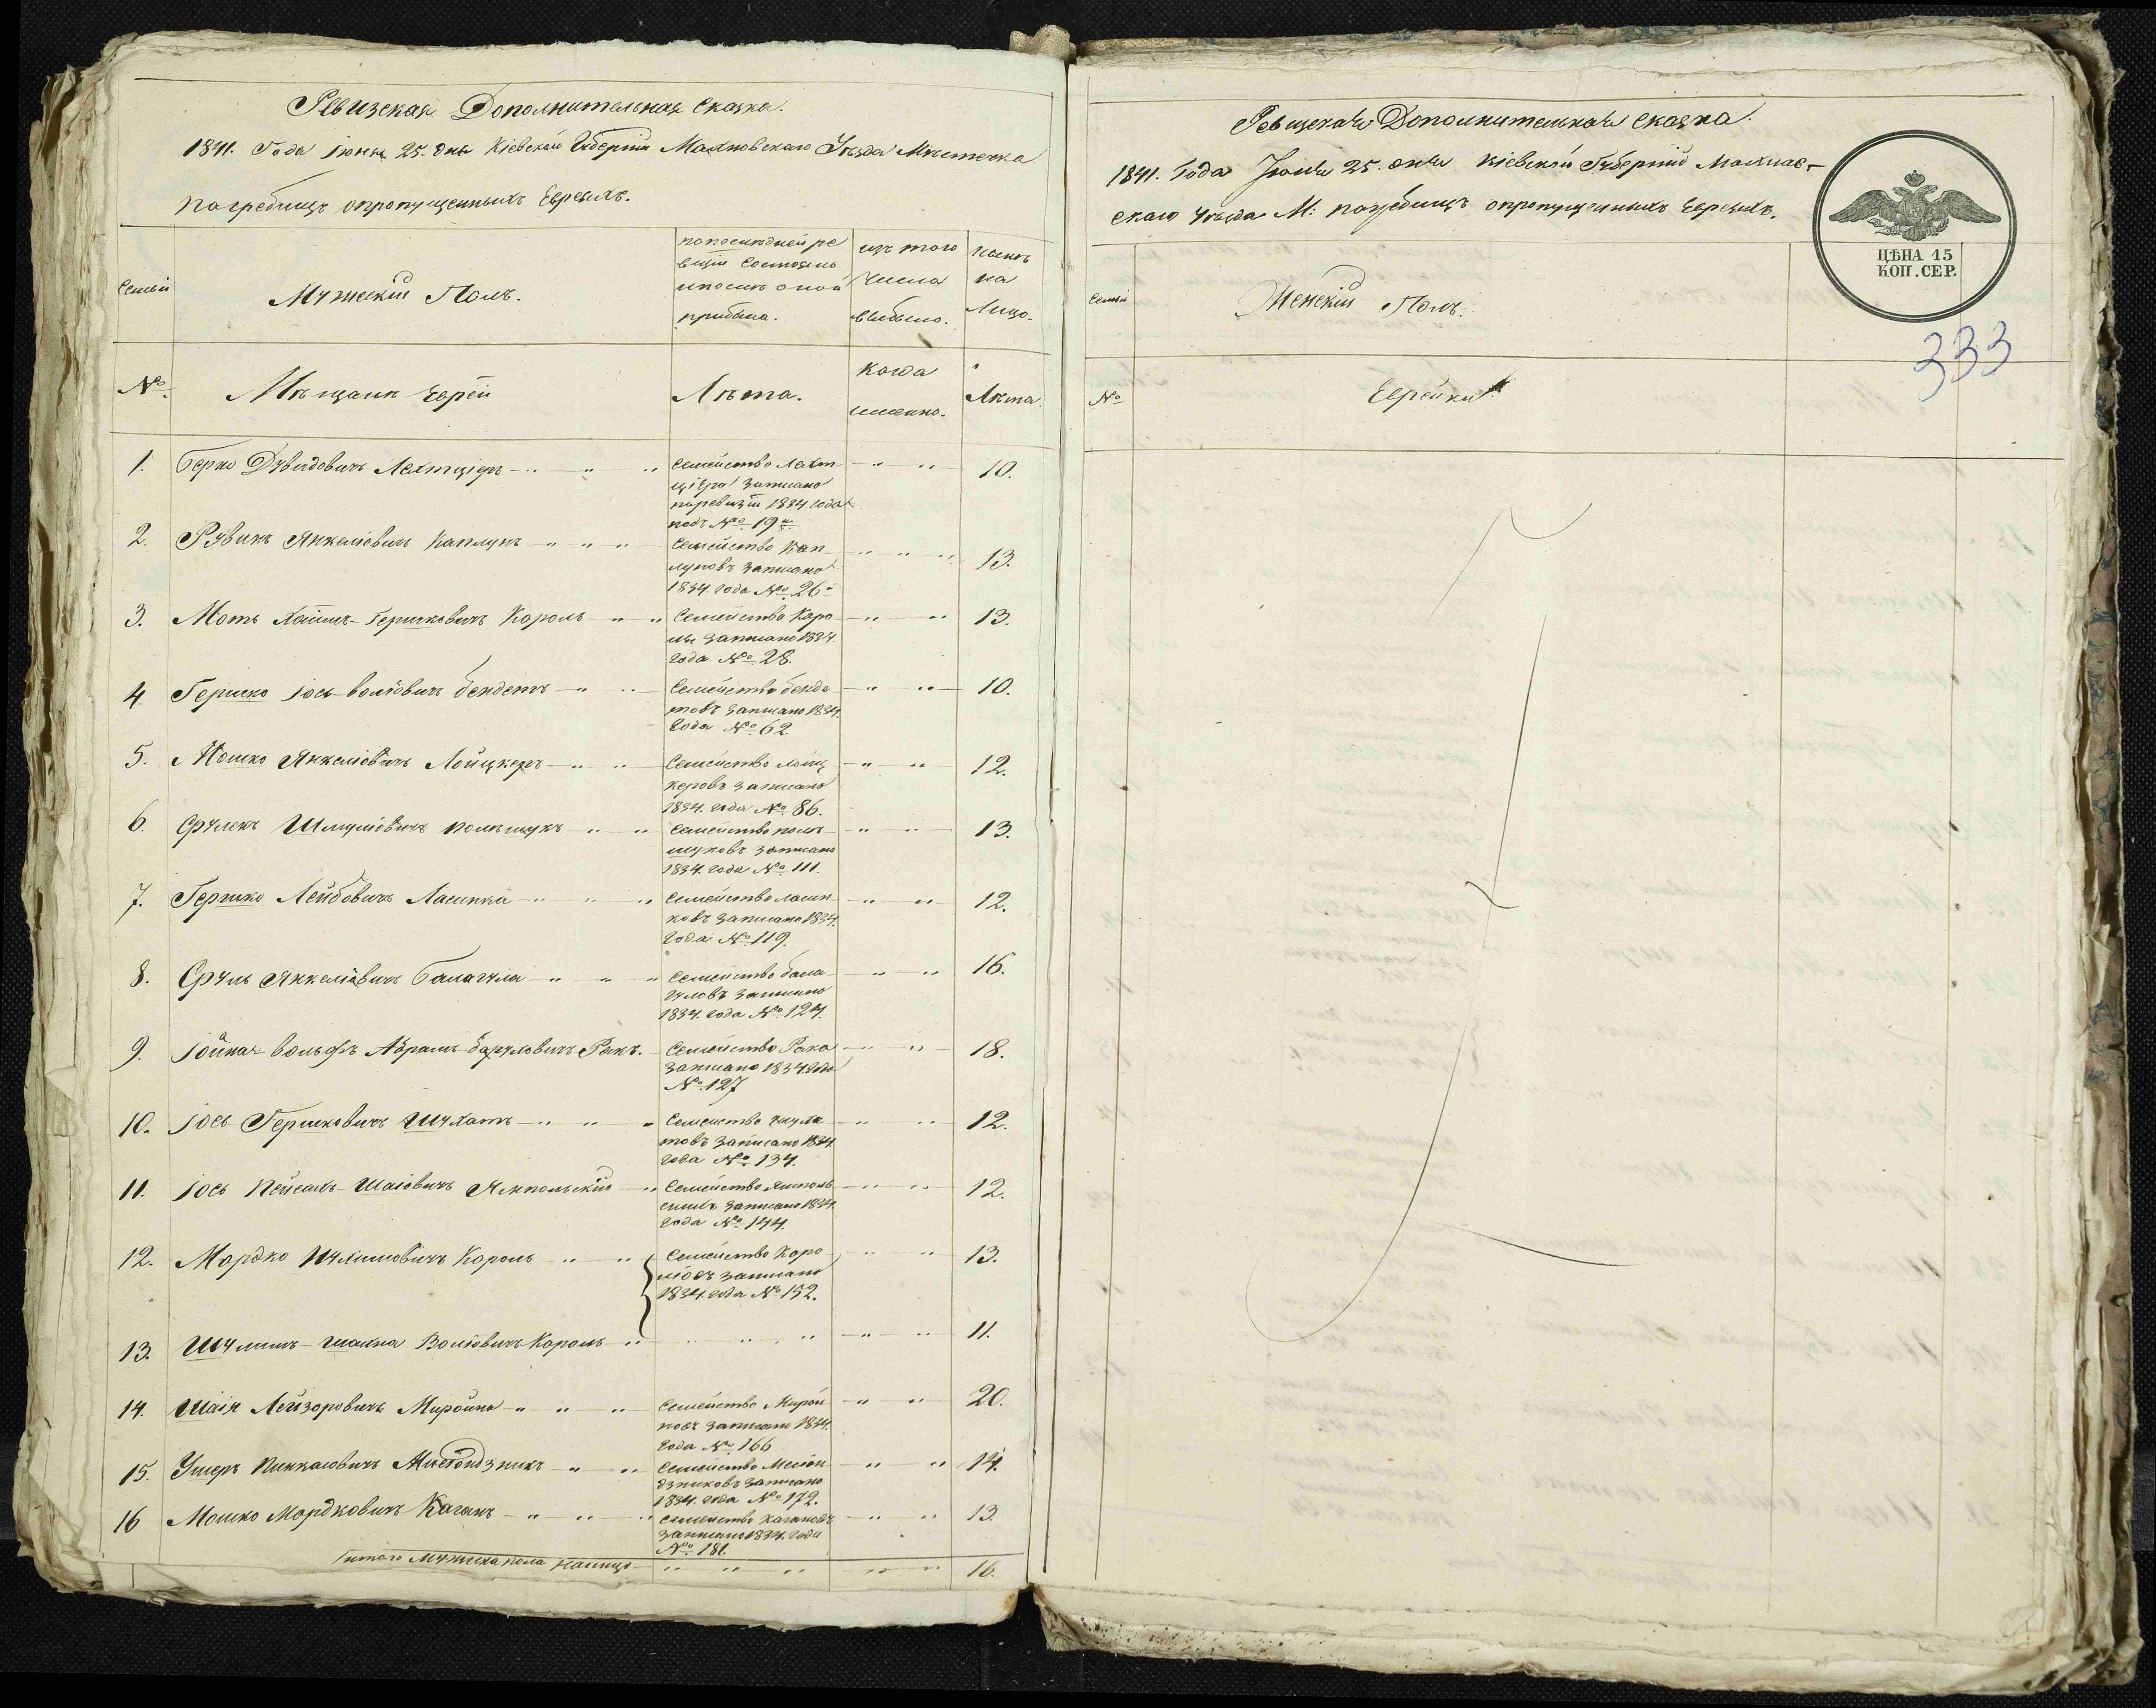 Ревизская Дополнительная Сказка.
1841. Года Іюня 25. дня Кіевской Губерніи Махновскаго Уѣзда Мѣстечка
Погребищъ опропущенныхъ Евреяхъ.
Семьи
Мужескій Полъ.
попоследней ре
визіи Состояло
ипослѣ оной
прибыло.
изъ того
Числа
выбыло.
Нынѣ
на
Лицо.
№.
Мѣщане Евреи
Лѣта.
Когда
именно.
Лѣта.
1. Берко Дувидовичъ Лехтціеръ 10.
Семейство Лехт
ціера записано
поревизіи 1834. года
подъ № 19
2. Рувинъ Янкеліовичъ Каплунъ 13.
Семейство Кап
луновъ записано
1834. года № 26
3. Моть Хаимъ-Гершковичъ Король 13.
Семейство Коро
ля записано 1834
года № 28.
4. Гершко Іось-Воліовичъ Бендетъ 10.
Семейство Бенде
товъ записано 1834.
Года № 62.
5. Мошко Янкеліовичъ Лойцкеръ 12.
Семейство Лойц
керовъ записано
1834. года № 86.
6. Срулекъ Шмуліовичъ Полѣщукъ 13.
Семейство полѣ
щуковъ записано
1834. года № 111.
7. Гершко Лейбовичъ Ласинка 12.
Семейство ласин
ковъ записано 1834.
года № 119.
8. Сруль Янкеліовичъ Балагула 16.
Семейство бала
гуловъ записано
1834. года № 124.
9. Іойна-Вольфъ Абрамъ-боруховичъ Ракъ. 18.
Семейство Рака
записано 1834. года
№ 127
10. Іось Гершковичъ Шухатъ 12.
Семейство Шуха
товъ записано 1834
года № 134.
11. Іось Пейсахъ-Шаіовичъ Ямпольскій 12.
Семейство Ямполь
скихъ записано 1834.
года № 144.
12. Мордко Шулимовичъ Король 13.
Семейство Коро
ліовъ записано
1834. года № 152.
13. Шулимъ-шахна Воліовичъ Король 11.
14. Шаія Лейзоровичъ Миройна 20.
Семейство Мирой
новъ записано 1834.
года № 166
15. Ушеръ Пинкасовичъ 14.
Семейство
дзниковъ записано
1834. года № 172.
16 Мошко Мордковичъ Каганъ 13.
Семейство Кагановъ
записано 1834. года
№ 181.
Итого Мужеска пола налицо 16.
Ревизская Дополнительная Сказка.
1841. Года Іюня 25. дня Кіевской Губерніи Махнов-
скаго Уѣзда М: погребищъ опропущенныхъ Евреяхъ.
ЦѢНА 15
КОП. СЕР.
333
Семьи
Женскій Полъ.
№
Еврейки